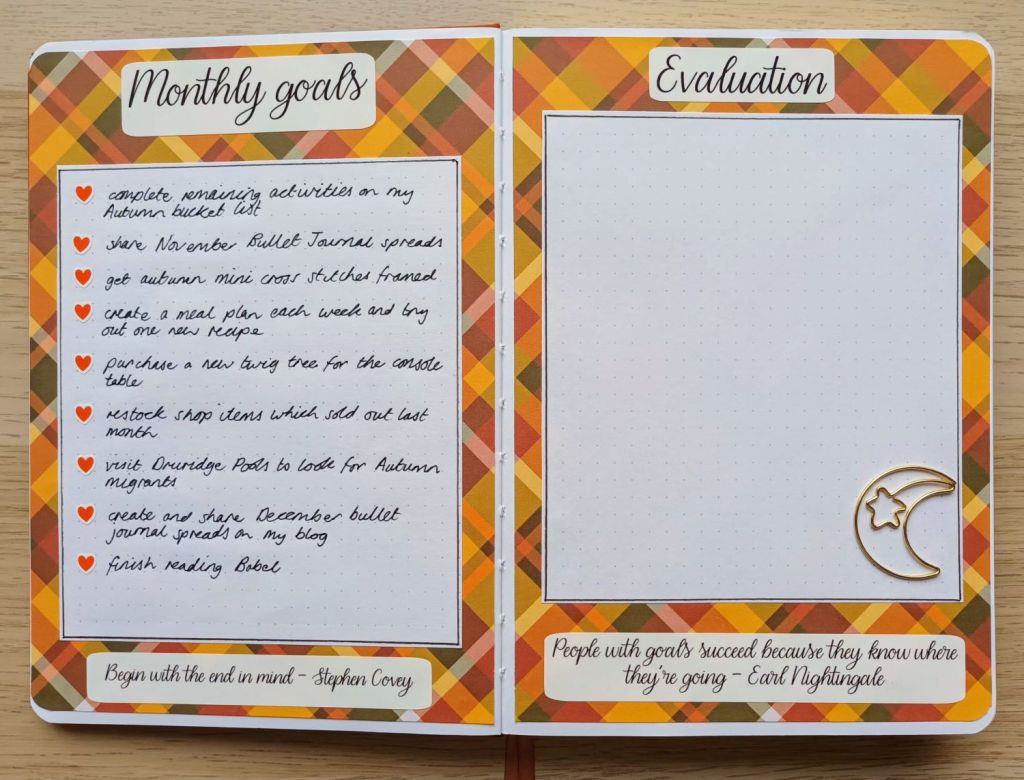 Monthly goals
complete remaining activities on my
Autumn bucket list
share November Bullet Journal spreads
get autumn mini cross stitches framed
create a meal plan each week and try
out one new recipe
purchase a new twig tree for the console
table
restock shop items which sold out last
month
visit Druridge Pools to look for Autumn
migrants
create and share December bullet
journal spreads on my blog
finish reading Babel
Begin with the end in mind - Stephen Covey
Evaluation
People with goals succeed because they know where
they're going - Earl Nightingale